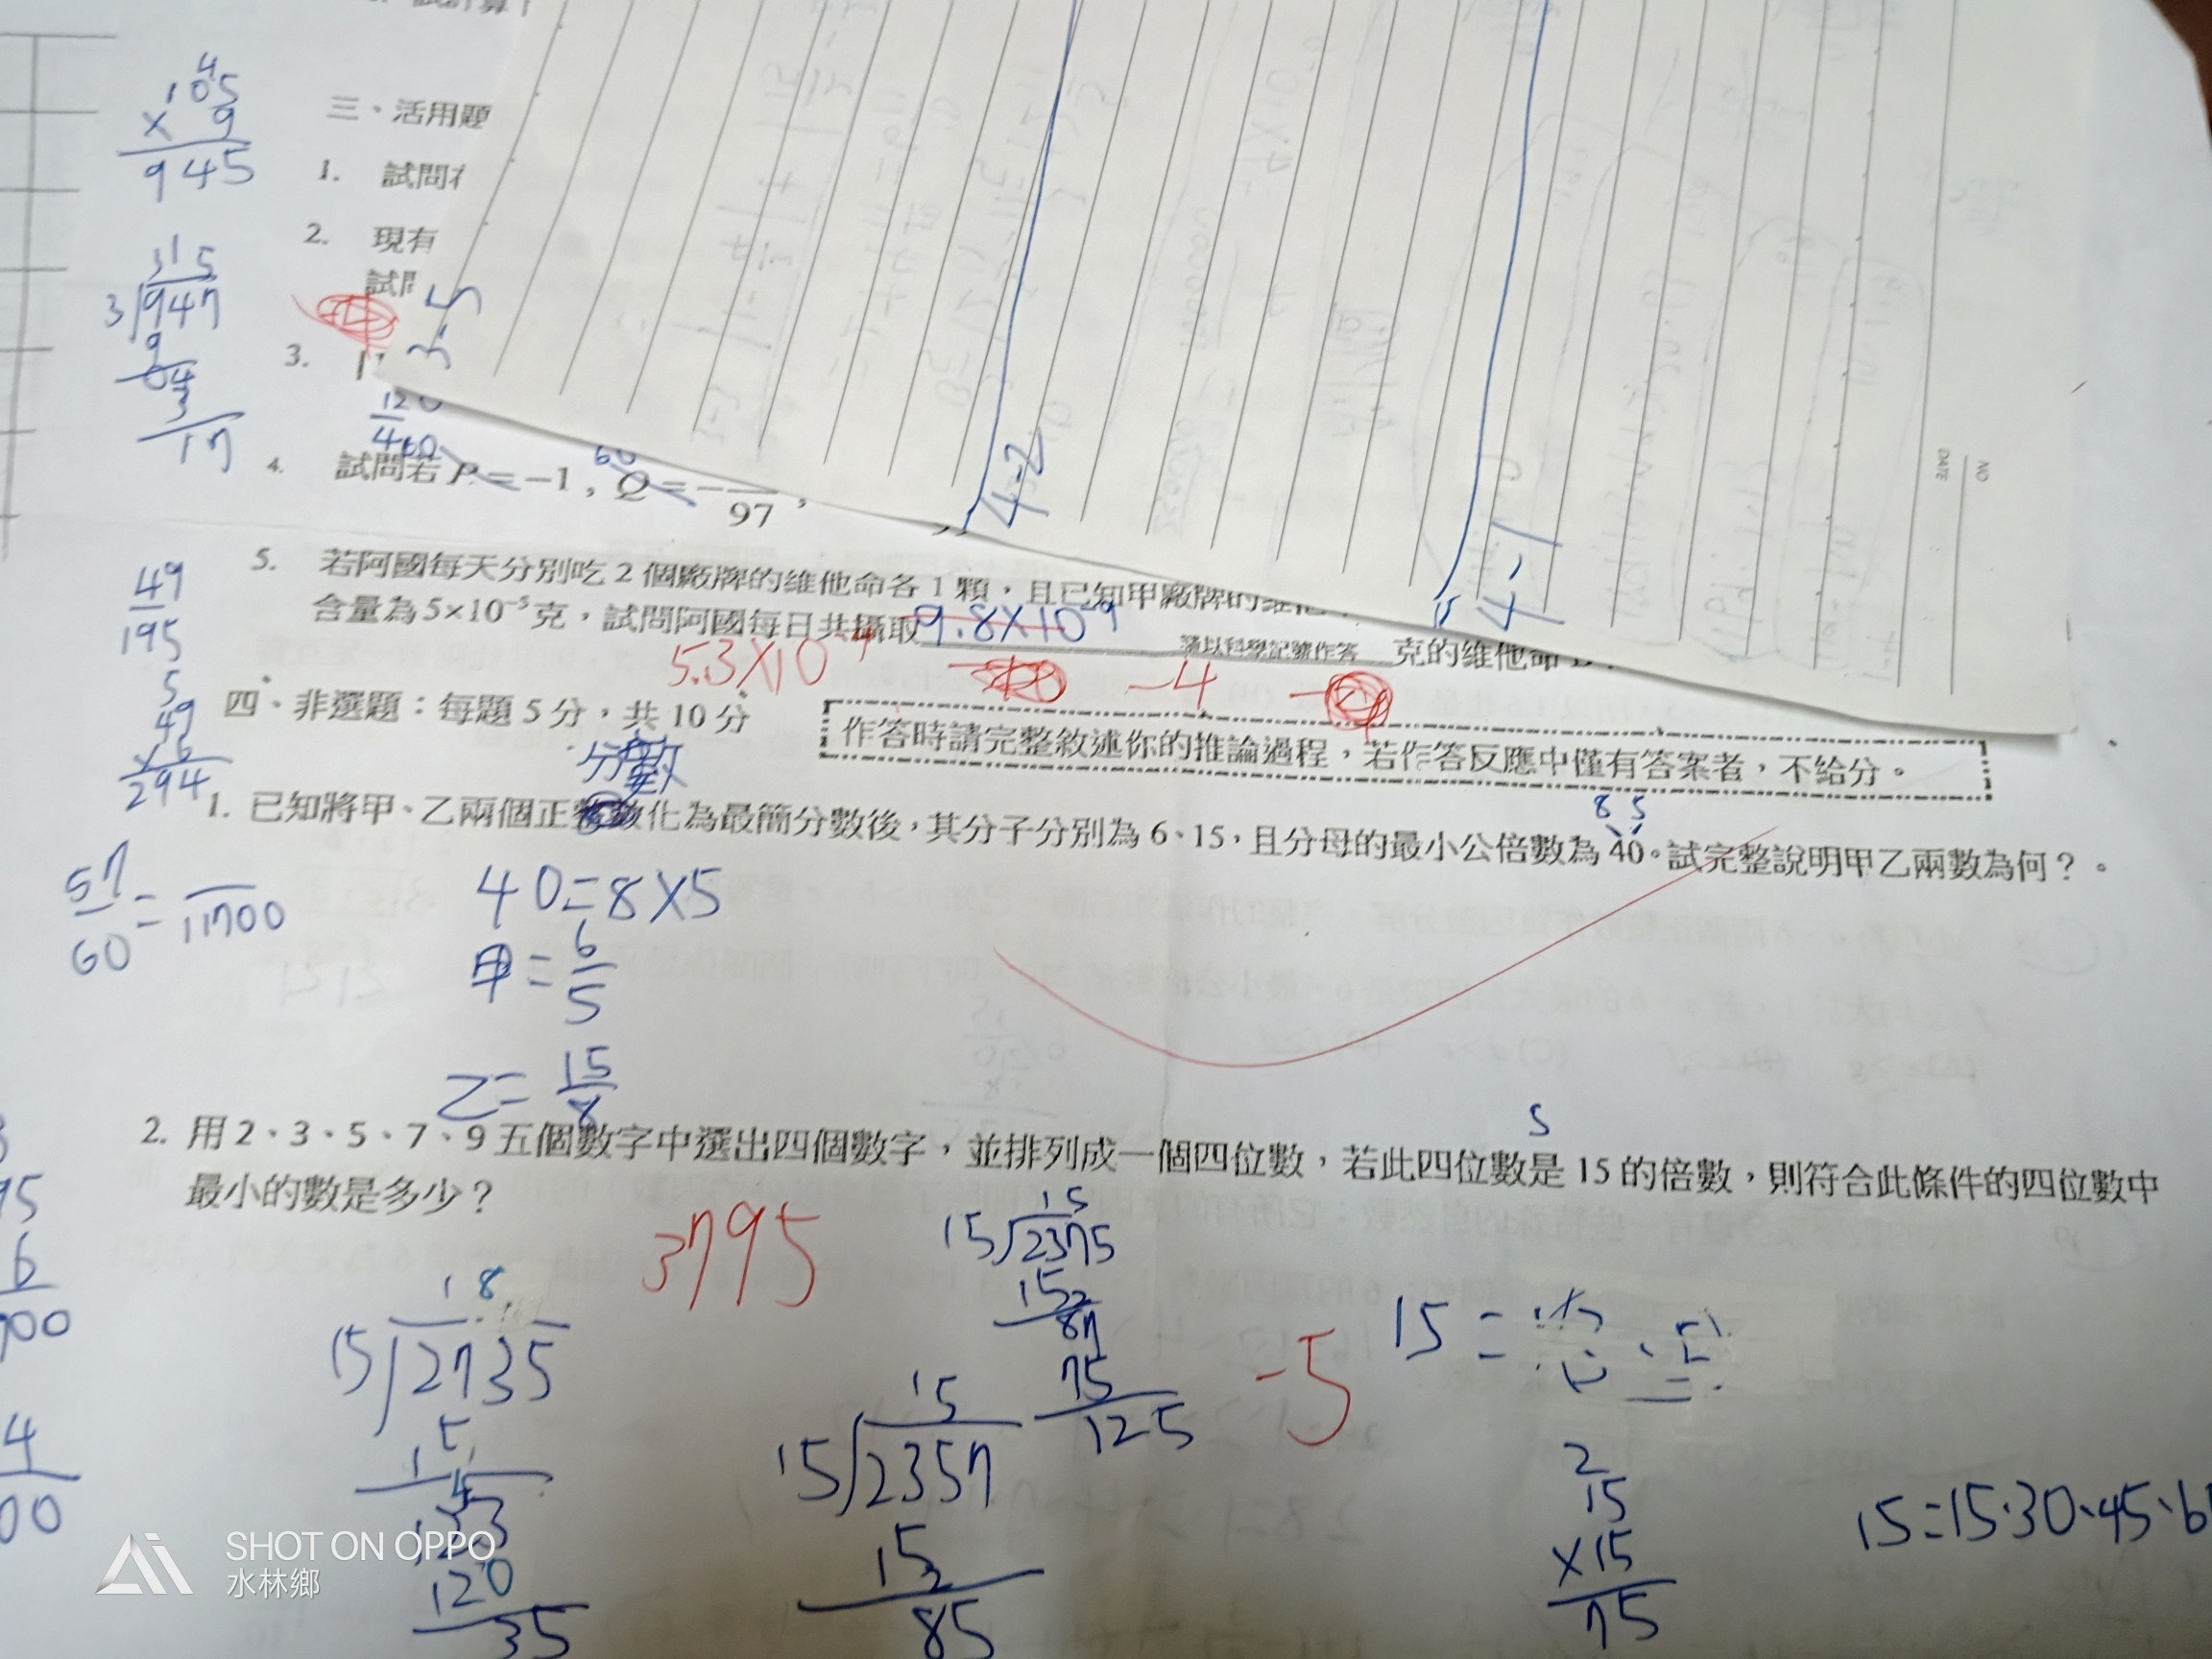 三、活用題
1. 試問
2. 現有
試問
3.
3-5
4-2
4-1
NO
DATE
4. 試問若 P = −1 , Q = − 97 ,
5. 若阿國每天分別吃 2 個廠牌的維他命各 1 顆，且已知甲廠牌的維他
含量為 5×10⁻⁵ 克，試問阿國每日共攝取 9.8×10⁻⁹ 請以科學記號作答 克的維他命
5.3×10⁻⁴
-4
四、非選題：每題 5 分，共 10 分
作答時請完整敘述你的推論過程，若作答反應中僅有答案者，不給分。
分數
8 5
1. 已知將甲、乙兩個正 數化為最簡分數後，其分子分別為 6、15，且分母的最小公倍數為 40。試完整說明甲乙兩數為何？。
40=8×5
甲= 6/5
乙= 15/8
5
2. 用 2、3、5、7、9 五個數字中選出四個數字，並排列成一個四位數，若此四位數是 15 的倍數，則符合此條件的四位數中
最小的數是多少？
3795
-5
18
15 2735
15
120
35
15
15 2375
15
87
75
125
15
15 2357
15
85
15 =
2
15
×15
75
15=15·30·45·6
105
× 9
945
315
3 947
9
04
3
17
49
195
49
×6
294
57/60 = /11700
SHOT ON OPPO
水林鄉